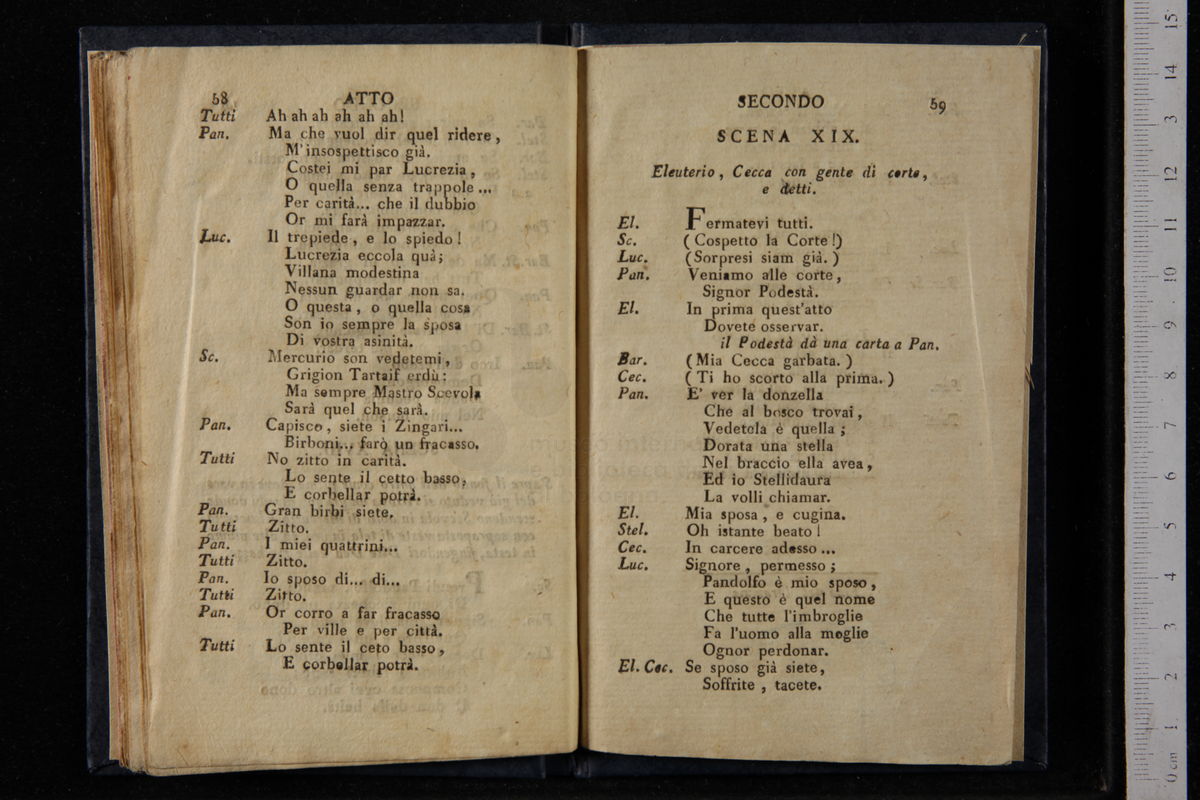 58 ATTO
Tutti Ah ah ah ah ah ah!
Pan. Ma che vuol dir quel ridere,
M'insospettisco già.
Costei mi par Lucrezia,
O quella senza trappole...
Per carità... che il dubbio
Or mi farà impazzar.
Luc. Il trepiede, e lo spiedo!
Lucrezia eccola quà;
Villana modestina
Nessun guardar non sa.
O questa, o quella cosa
Son io sempre la sposa
Di vostra asinità.
Sc. Mercurio son vedetemi,
Grigion Tartaif erdù:
Ma sempre Mastro Scevola
Sarà quel che sarà.
Pan. Capisco, siete i Zingari...
Birboni... farò un fracasso.
Tutti No zitto in carità.
Lo sente il cetto basso,
E corbellar potrà.
Pan. Gran birbi siete.
Tutti Zitto.
Pan. I miei quattrini...
Tutti Zitto.
Pan. Io sposo di... di...
Tutti Zitto.
Pan. Or corro a far fracasso
Per ville e per città.
Tutti Lo sente il ceto basso,
E corbellar potrà.
SECONDO 59
SCENA XIX.
Eleuterio, Cecca con gente di corte,
e detti.
El. Fermatevi tutti.
Sc. (Cospetto la Corte!)
Luc. (Sorpresi siam già.)
Pan. Veniamo alle corte,
Signor Podestà.
El. In prima quest'atto
Dovete osservar.
il Podestà dà una carta a Pan.
Bar. (Mia Cecca garbata.)
Cec. (Ti ho scorto alla prima.)
Pan. E' ver la donzella
Che al bosco trovai,
Vedetela è quella;
Dorata una stella
Nel braccio ella avea,
Ed io Stellidaura
La volli chiamar.
El. Mia sposa, e cugina.
Stel. Oh istante beato!
Cec. In carcere adesso...
Luc. Signore, permesso;
Pandolfo è mio sposo,
E questo è quel nome
Che tutte l'imbroglie
Fa l'uomo alla moglie
Ognor perdonar.
El. Cec. Se sposo già siete,
Soffrite, tacete.